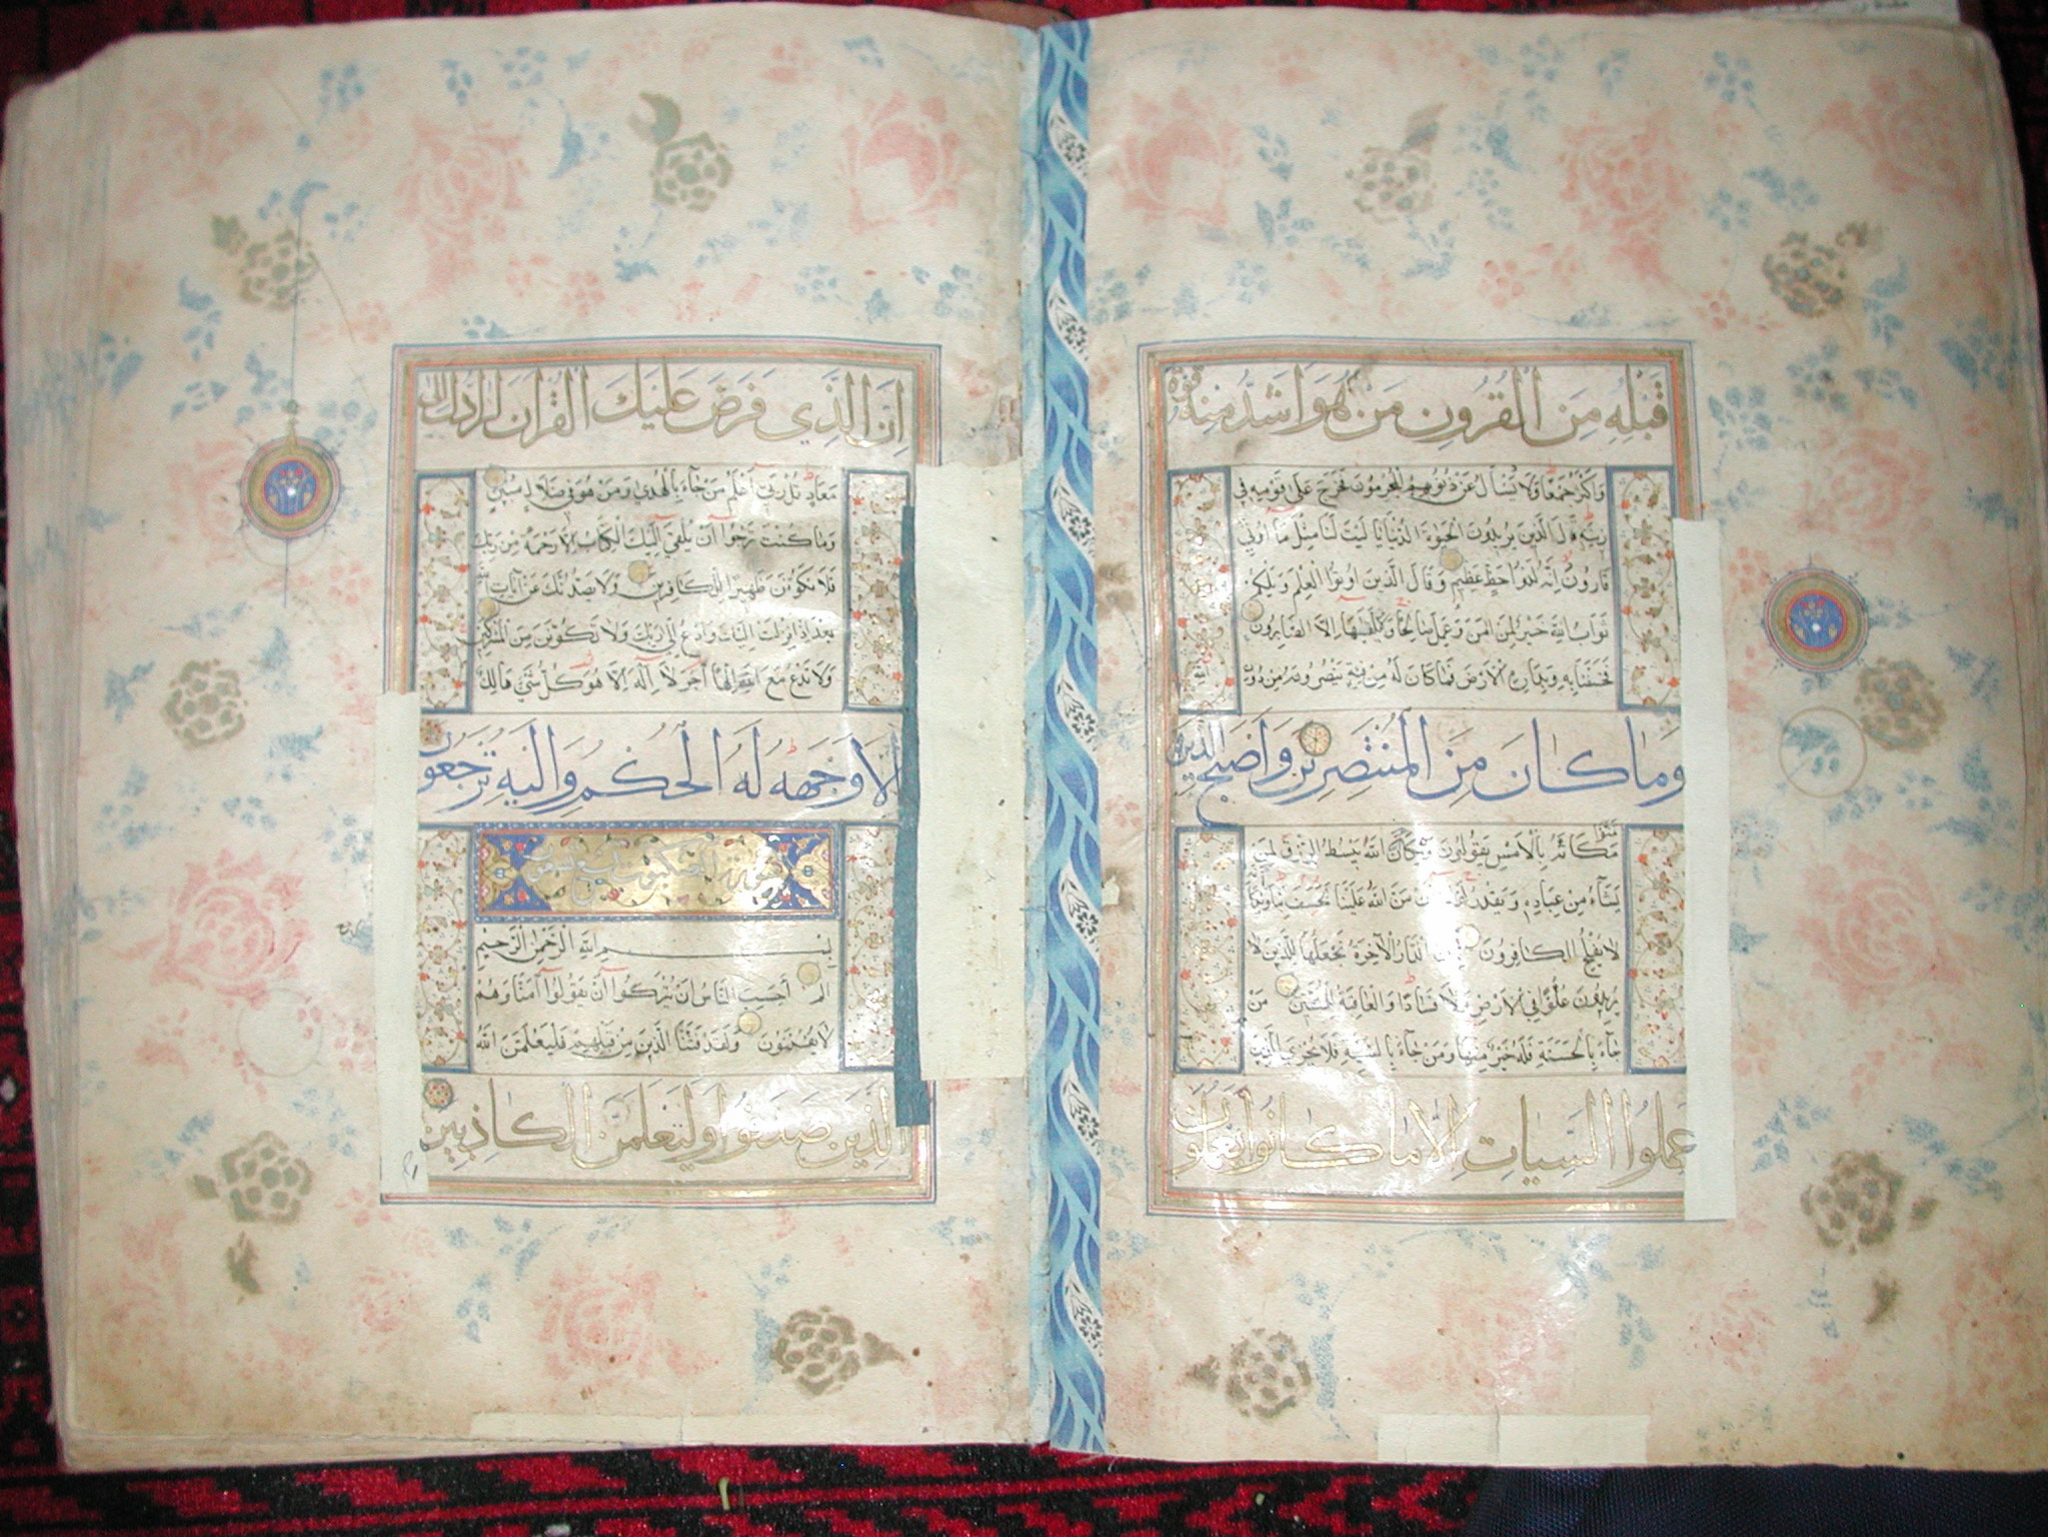 قَبْلِهِ مِنَ الْقُرُونِ مَنْ هُوَ أَشَدُّ مِنْهُ قُوَّةً
وَأَكْثَرُ جَمْعًا وَلَا يُسْأَلُ عَنْ ذُنُوبِهِمُ الْمُجْرِمُونَ فَخَرَجَ عَلَى قَوْمِهِ فِي
زِينَتِهِ قَالَ الَّذِينَ يُرِيدُونَ الْحَيٰوةَ الدُّنْيَا يَا لَيْتَ لَنَا مِثْلَ مَا أُوتِيَ
قَارُونُ إِنَّهُ لَذُو حَظٍّ عَظِيمٍ وَقَالَ الَّذِينَ أُوتُوا الْعِلْمَ وَيْلَكُمْ
ثَوَابُ اللَّهِ خَيْرٌ لِمَنْ آمَنَ وَعَمِلَ صَالِحًا وَلَا يُلَقَّاهَا إِلَّا الصَّابِرُونَ
فَخَسَفْنَا بِهِ وَبِدَارِهِ الْأَرْضَ فَمَا كَانَ لَهُ مِنْ فِئَةٍ يَنْصُرُونَهُ مِنْ دُونِ
وَمَا كَانَ مِنَ الْمُنْتَصِرِينَ وَأَصْبَحَ الَّذِينَ
تَمَنَّوْا مَكَانَهُ بِالْأَمْسِ يَقُولُونَ وَيْكَأَنَّ اللَّهَ يَبْسُطُ الرِّزْقَ لِمَنْ
يَشَاءُ مِنْ عِبَادِهِ وَيَقْدِرُ لَوْلَا أَنْ مَنَّ اللَّهُ عَلَيْنَا لَخَسَفَ بِنَا وَيْكَأَنَّهُ
لَا يُفْلِحُ الْكَافِرُونَ تِلْكَ الدَّارُ الْآخِرَةُ نَجْعَلُهَا لِلَّذِينَ لَا
يُرِيدُونَ عُلُوًّا فِي الْأَرْضِ وَلَا فَسَادًا وَالْعَاقِبَةُ لِلْمُتَّقِينَ مَنْ
جَاءَ بِالْحَسَنَةِ فَلَهُ خَيْرٌ مِنْهَا وَمَنْ جَاءَ بِالسَّيِّئَةِ فَلَا يُجْزَى الَّذِينَ
عَمِلُوا السَّيِّاتِ إِلَّا مَا كَانُوا يَعْمَلُونَ
إِنَّ الَّذِي فَرَضَ عَلَيْكَ الْقُرْآنَ لَرَادُّكَ إِلَى
مَعَادٍ قُلْ رَبِّي أَعْلَمُ مَنْ جَاءَ بِالْهُدَى وَمَنْ هُوَ فِي ضَلَالٍ مُبِينٍ
وَمَا كُنْتَ تَرْجُوا أَنْ يُلْقَى إِلَيْكَ الْكِتَابُ إِلَّا رَحْمَةً مِنْ رَبِّكَ
فَلَا تَكُونَنَّ ظَهِيرًا لِلْكَافِرِينَ وَلَا يَصُدُّنَّكَ عَنْ آيَاتِ اللَّهِ
بَعْدَ إِذْ أُنْزِلَتْ إِلَيْكَ وَادْعُ إِلَى رَبِّكَ وَلَا تَكُونَنَّ مِنَ الْمُشْرِكِينَ
وَلَا تَدْعُ مَعَ اللَّهِ إِلَهًا آخَرَ لَا إِلَهَ إِلَّا هُوَ كُلُّ شَيْءٍ هَالِكٌ
إِلَّا وَجْهَهُ لَهُ الْحُكْمُ وَإِلَيْهِ تُرْجَعُونَ
سورة العنكبوت
بِسْمِ اللَّهِ الرَّحْمَنِ الرَّحِيمِ
الم أَحَسِبَ النَّاسُ أَنْ يُتْرَكُوا أَنْ يَقُولُوا آمَنَّا وَهُمْ
لَا يُفْتَنُونَ وَلَقَدْ فَتَنَّا الَّذِينَ مِنْ قَبْلِهِمْ فَلَيَعْلَمَنَّ اللَّهُ
الَّذِينَ صَدَقُوا وَلَيَعْلَمَنَّ الْكَاذِبِينَ